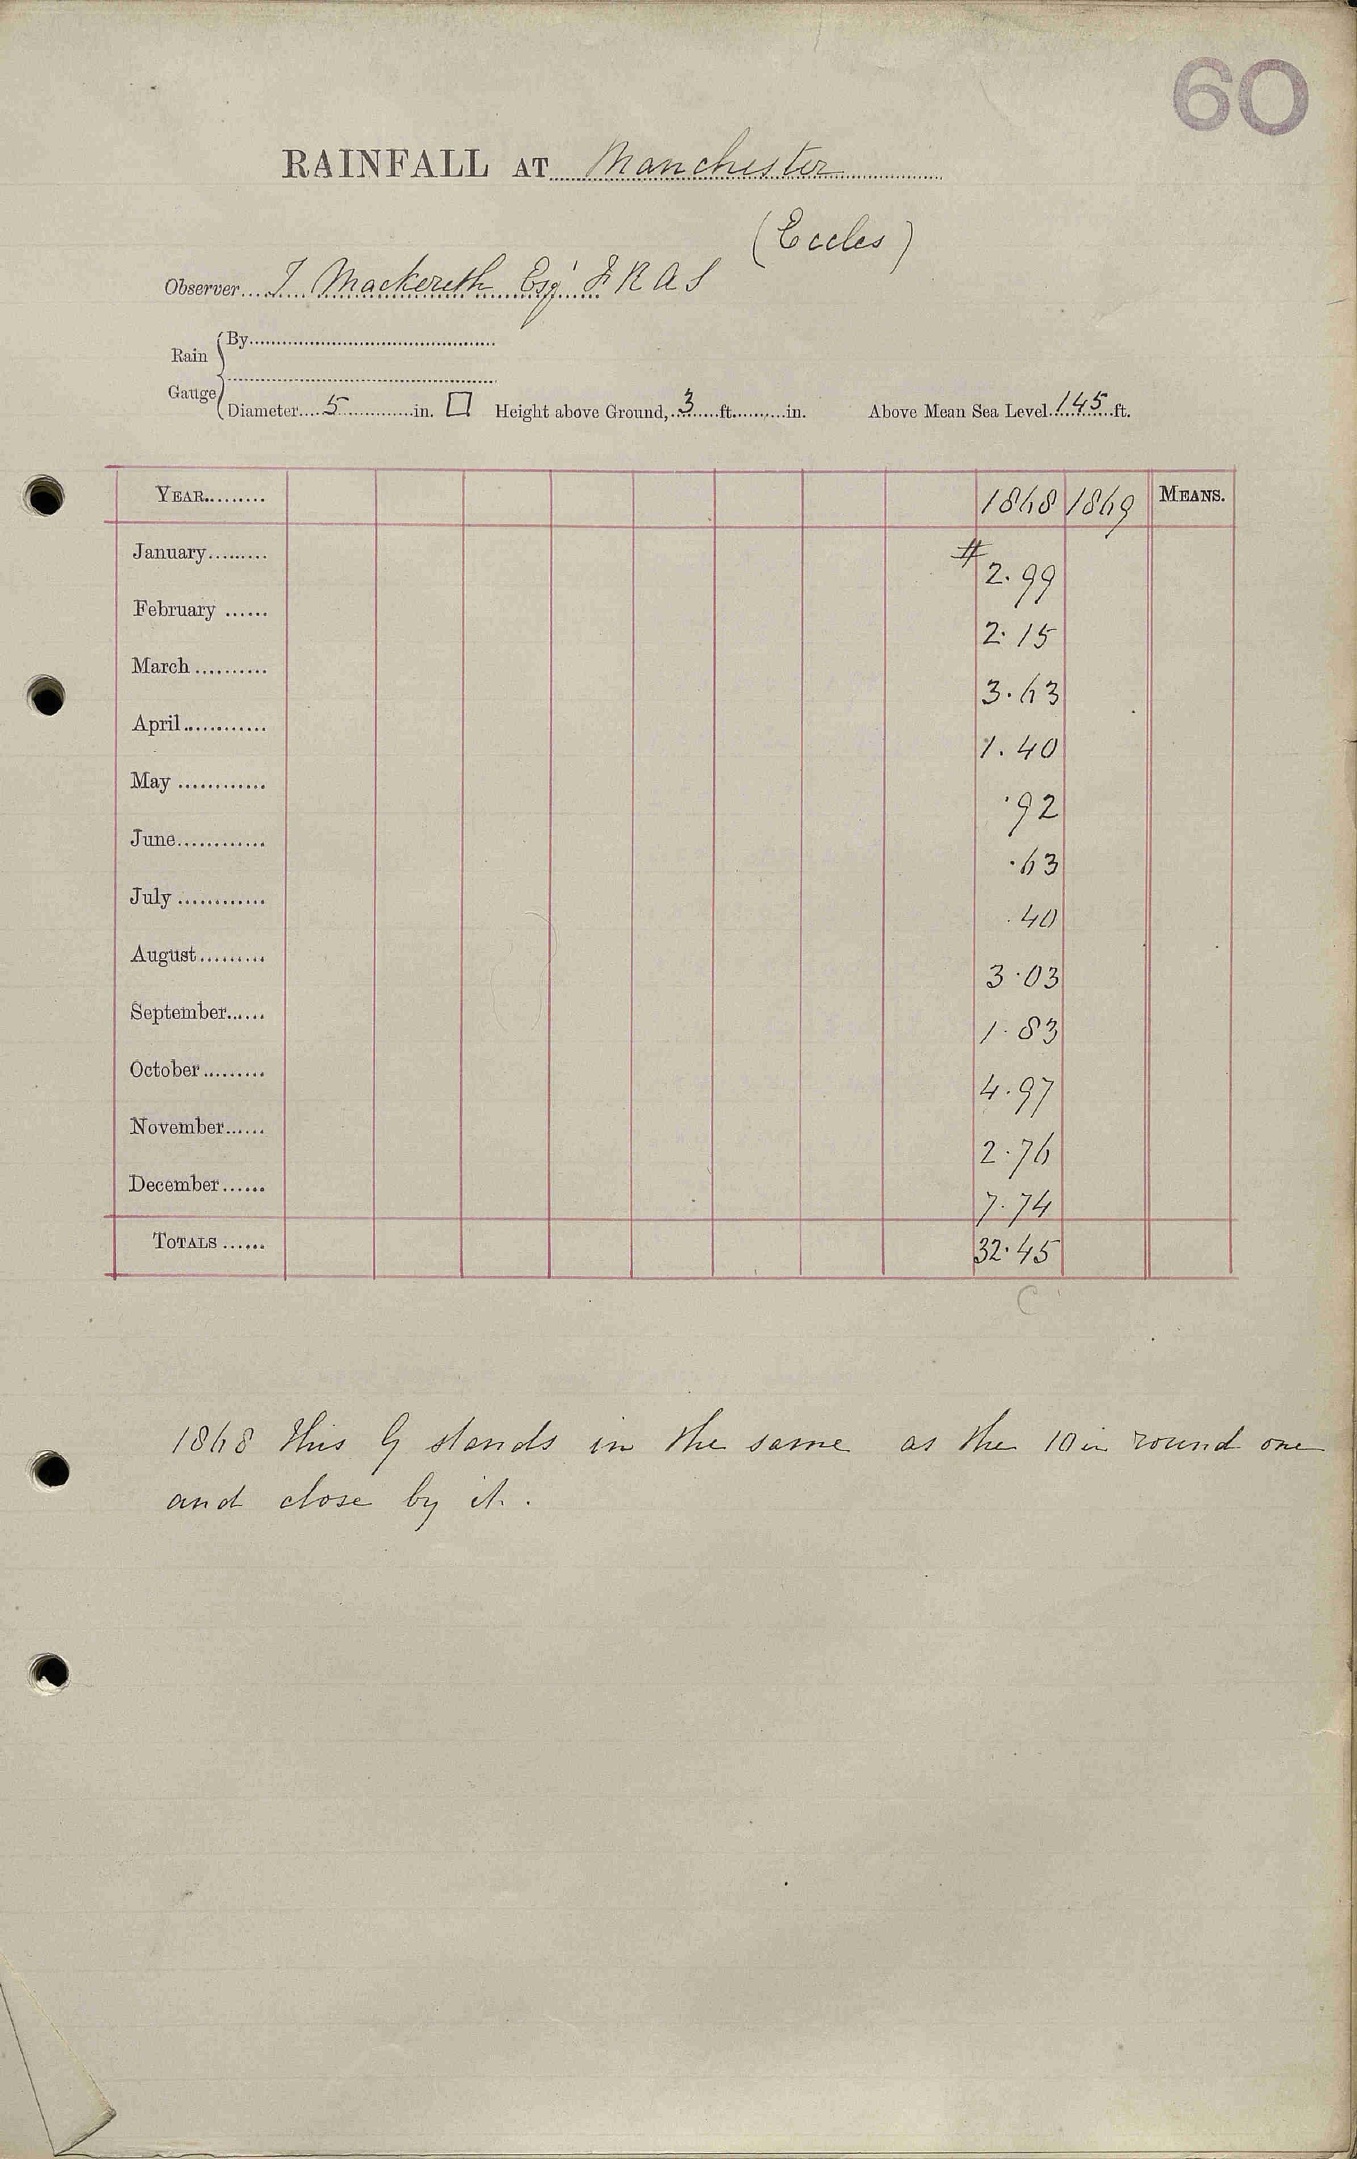 60
RAINFALL AT Manchester
(Eccles)
Observer.... T Mackereth Esqr F R A S
Rain Gauge { By
Diameter.... 5 ....in. □ Height above Ground, 3 ft. in. Above Mean Sea Level 145 ft.
YEAR......... 1868 1869 MEANS.
#
January......... 2.99
February ...... 2.15
March .......... 3.63
April............ 1.40
May ............ .92
June............ .63
July ............ .40
August......... 3.03
September...... 1.83
October......... 4.97
November...... 2.76
December...... 7.74
TOTALS ...... 32.45
C
1868 This G stands in the same as the 10 in round one
and close by it.